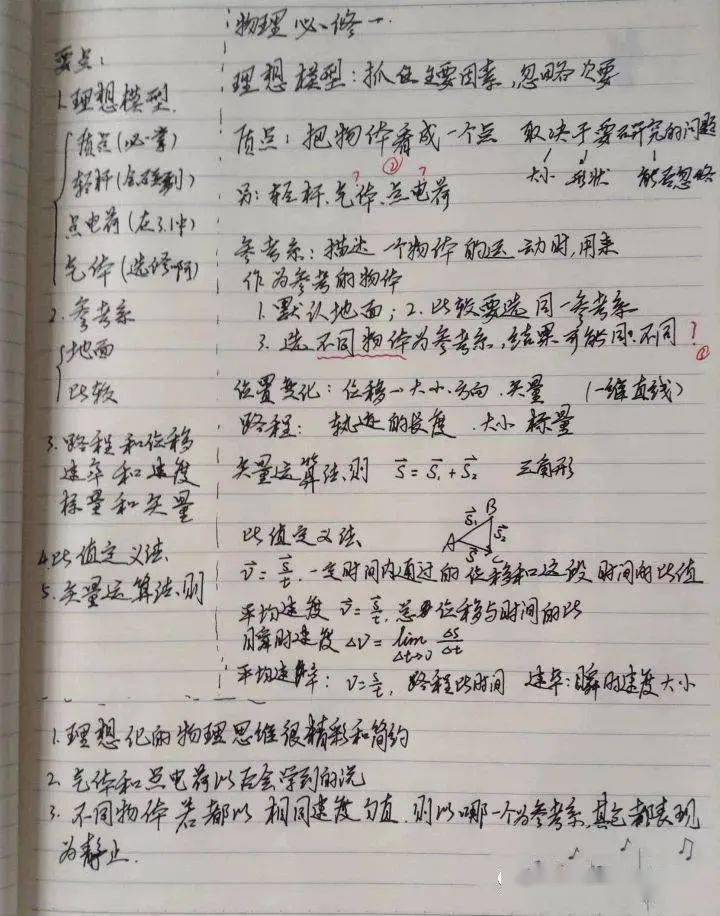 物理必修一
要点:
1.理想模型
质点(必一掌)
轻杆(会碰到)
点电荷(在3.1中)
气体(选修啊)
2.参考系
地面
比较
3.路程和位移
速率和速度
标量和矢量
4.比值定义法
5.矢量运算法则
理想模型:抓住主要因素,忽略次要
质点:把物体看成一个点 取决于要研究的问题
大小 形状 能否忽略
②
? ?
另:轻杆、气体、点电荷
参考系:描述一个物体的运动时,用来
作为参考的物体
1.默认地面;2.比较要选同一参考系
3.选不同物体为参考系,结果可能同、不同?
位置变化:位移→大小、方向、矢量 (一维直线)
路程:轨迹的长度、大小 标量
矢量运算法则 s⃗=s⃗₁+s⃗₂ 三角形
比值定义法
A B C s⃗₁ s⃗₂ s⃗
v⃗=s⃗/t,一定时间内通过的位移和这段时间的比值
平均速度 v⃗=s⃗/t,总位移与时间的比
瞬时速度 Δv=lim Δt→0 Δs/Δt
平均速率:v=s/t,路程比时间 速率:瞬时速度大小
1.理想化的物理思维很精彩和简约
2.气体和点电荷以后会学到的说
3.不同物体若都以相同速度匀直,则以哪一个为参考系,其它都表现
为静止.